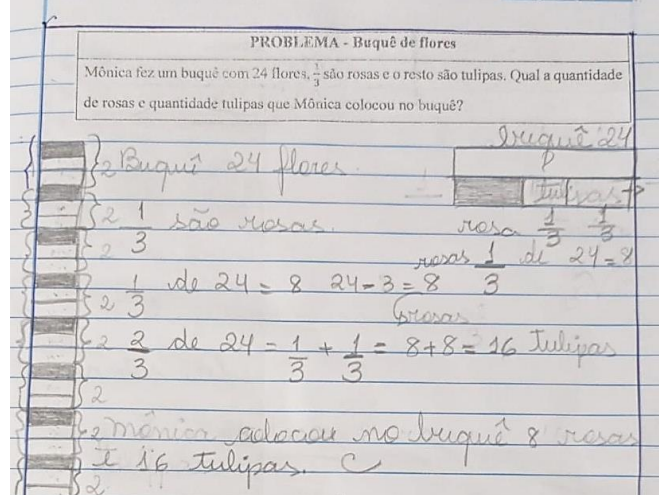 PROBLEMA - Buquê de flores
Mônica fez um buquê com 24 flores, 1/3 são rosas e o resto são tulipas. Qual a quantidade
de rosas e quantidade tulipas que Mônica colocou no buquê?
buquê 24
2 Buquê 24 flores
tulipas
2 1/3 são rosas.
rosa 1/3 1/3
2
rosas 1/3 de 24 = 8
2 1/3 de 24 = 8 24-3=8
rosas
2 2/3 de 24 = 1/3 + 1/3 = 8+8=16 Tulipas
2
2 Mônica colocou no buquê 8 rosas
E 16 tulipas. C
2